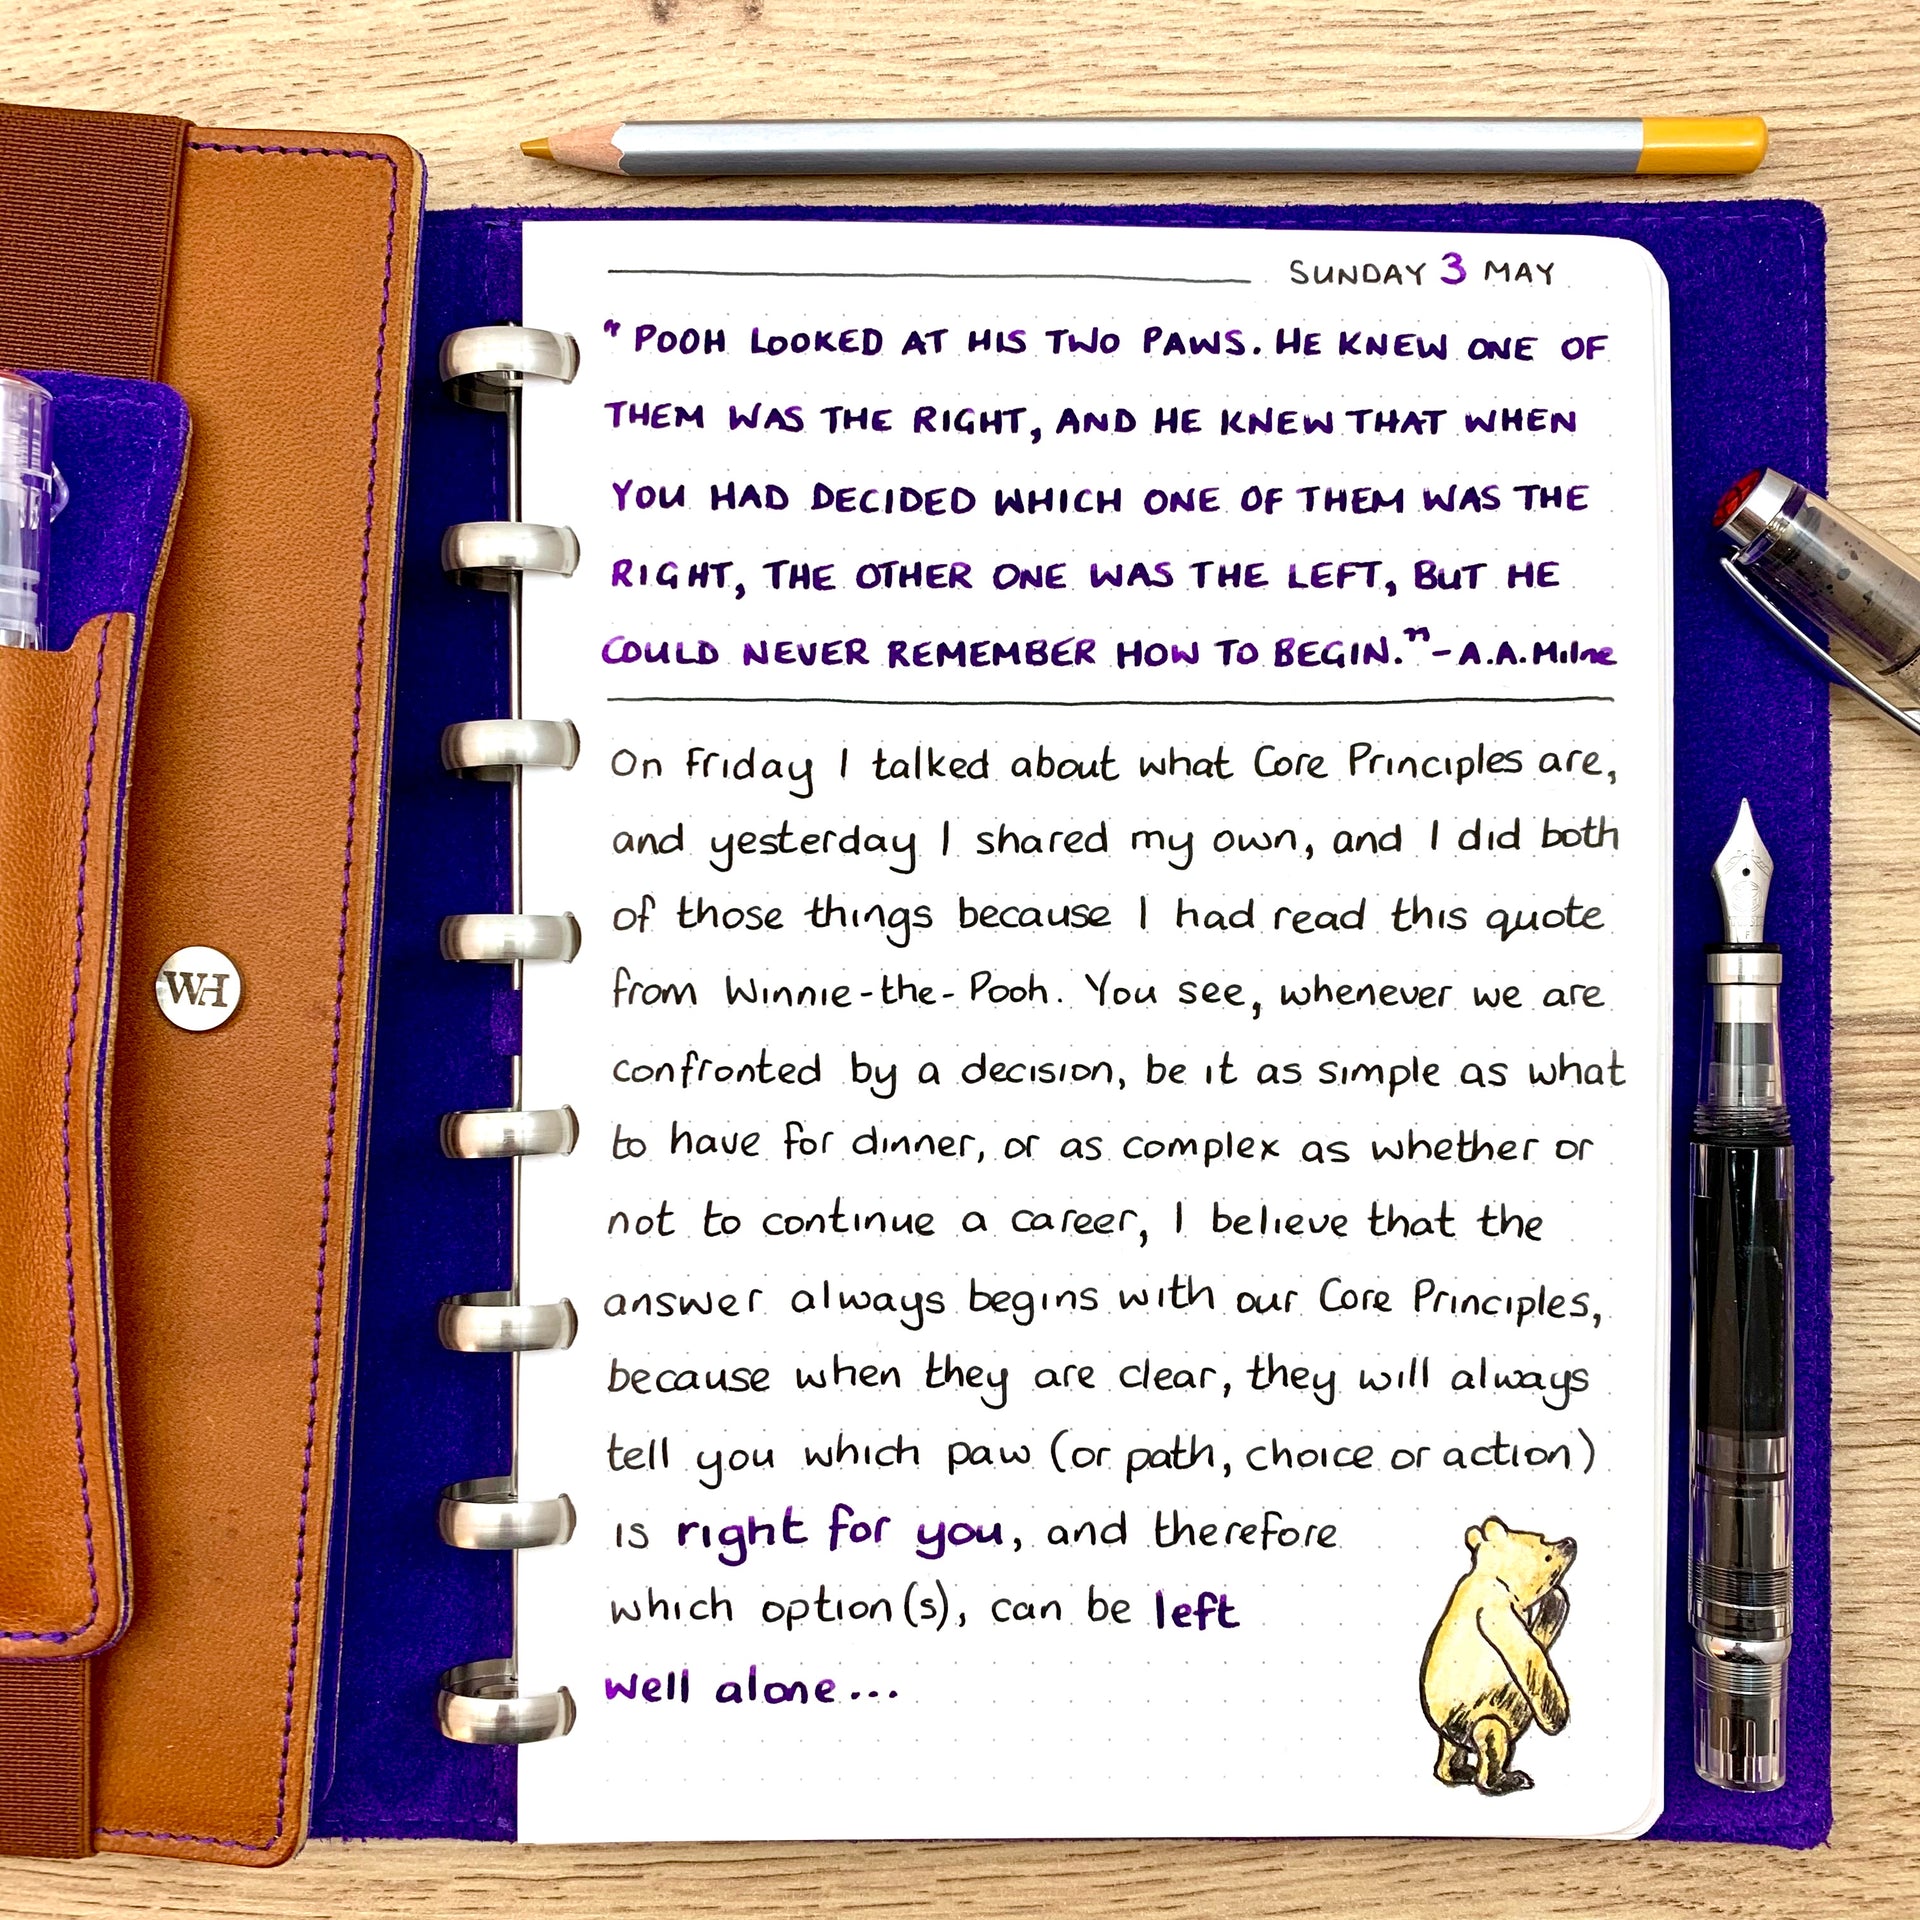 SUNDAY 3 MAY
"POOH LOOKED AT HIS TWO PAWS. HE KNEW ONE OF
THEM WAS THE RIGHT, AND HE KNEW THAT WHEN
YOU HAD DECIDED WHICH ONE OF THEM WAS THE
RIGHT, THE OTHER ONE WAS THE LEFT, BUT HE
COULD NEVER REMEMBER HOW TO BEGIN." - A.A. Milne
On Friday I talked about what Core Principles are,
and yesterday I shared my own, and I did both
of those things because I had read this quote
from Winnie-the-Pooh. You see, whenever we are
confronted by a decision, be it as simple as what
to have for dinner, or as complex as whether or
not to continue a career, I believe that the
answer always begins with our Core Principles,
because when they are clear, they will always
tell you which paw (or path, choice or action)
is right for you, and therefore
which option(s), can be left
well alone...
WH